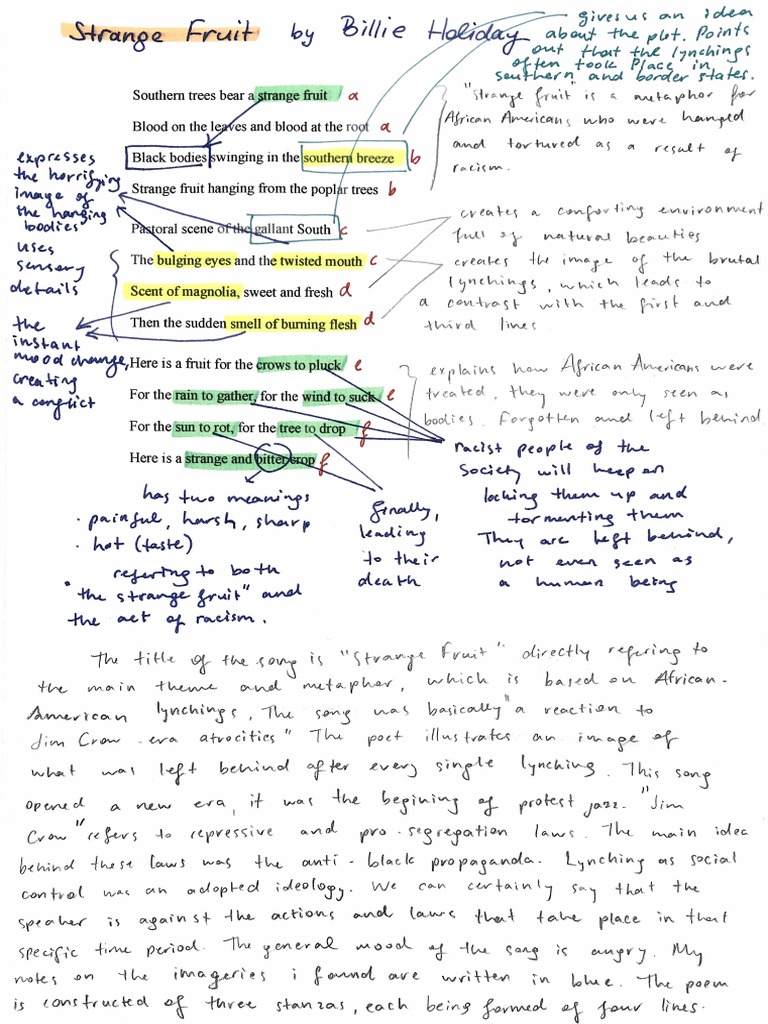 Strange Fruit by Billie Holiday
gives us an idea
about the plot. Points
out that the lynchings
often took place in
southern and border states.
Southern trees bear a strange fruit a
Blood on the leaves and blood at the root a
Black bodies swinging in the southern breeze b
Strange fruit hanging from the poplar trees b
"strange fruit" is a metaphor for
African Americans who were hanged
and tortured as a result of
racism.
expresses
the horrifying
image of
the hanging
bodies
Pastoral scene of the gallant South c
The bulging eyes and the twisted mouth c
Scent of magnolia, sweet and fresh d
Then the sudden smell of burning flesh d
creates a comforting environment
full of natural beauties
creates the image of the brutal
lynchings, which leads to
a contrast with the first and
third lines
uses
sensory
details
the
instant
mood change,
creating
a conflict
Here is a fruit for the crows to pluck e
For the rain to gather, for the wind to suck e
For the sun to rot, for the tree to drop f
Here is a strange and bitter crop f
explains how African Americans were
treated, they were only seen as
bodies. Forgotten and left behind
racist people of the
society will keep on
locking them up and
tormenting them
They are left behind,
not even seen as
a human being
has two meanings
• painful, harsh, sharp
• hot (taste)
referring to both
"the strange fruit" and
the act of racism.
finally,
leading
to their
death
The title of the song is "Strange Fruit" directly refering to
the main theme and metaphor, which is based on African-
American lynchings. The song was basically "a reaction to
Jim Crow-era atrocities" The poet illustrates an image of
what was left behind after every single lynching. This song
opened a new era, it was the begining of protest jazz. "Jim
Crow" refers to repressive and pro-segregation laws. The main idea
behind these laws was the anti-black propaganda. Lynching as social
control was an adopted ideology. We can certainly say that the
speaker is against the actions and laws that take place in that
specific time period. The general mood of the song is angry. My
notes on the imageries i found are written in blue. The poem
is constructed of three stanzas, each being formed of four lines.